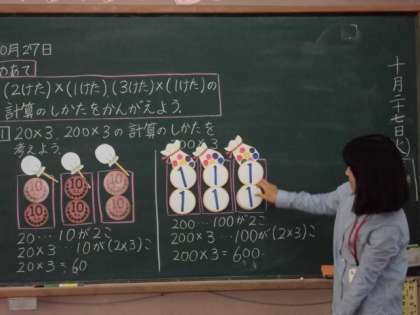 10月27日
めあて
(2けた)×(1けた)、(3けた)×(1けた)の
計算のしかたをかんがえよう。
1 20×3、200×3の計算のしかたを
考えよう。
10 10 10
10 10 10
20…10が2こ
20×3…10が(2×3)こ
20×3=60
1 1 1
1 1 1
200…100が2こ
200×3…100が(2×3)こ
200×3=600
十月二十七日(火)